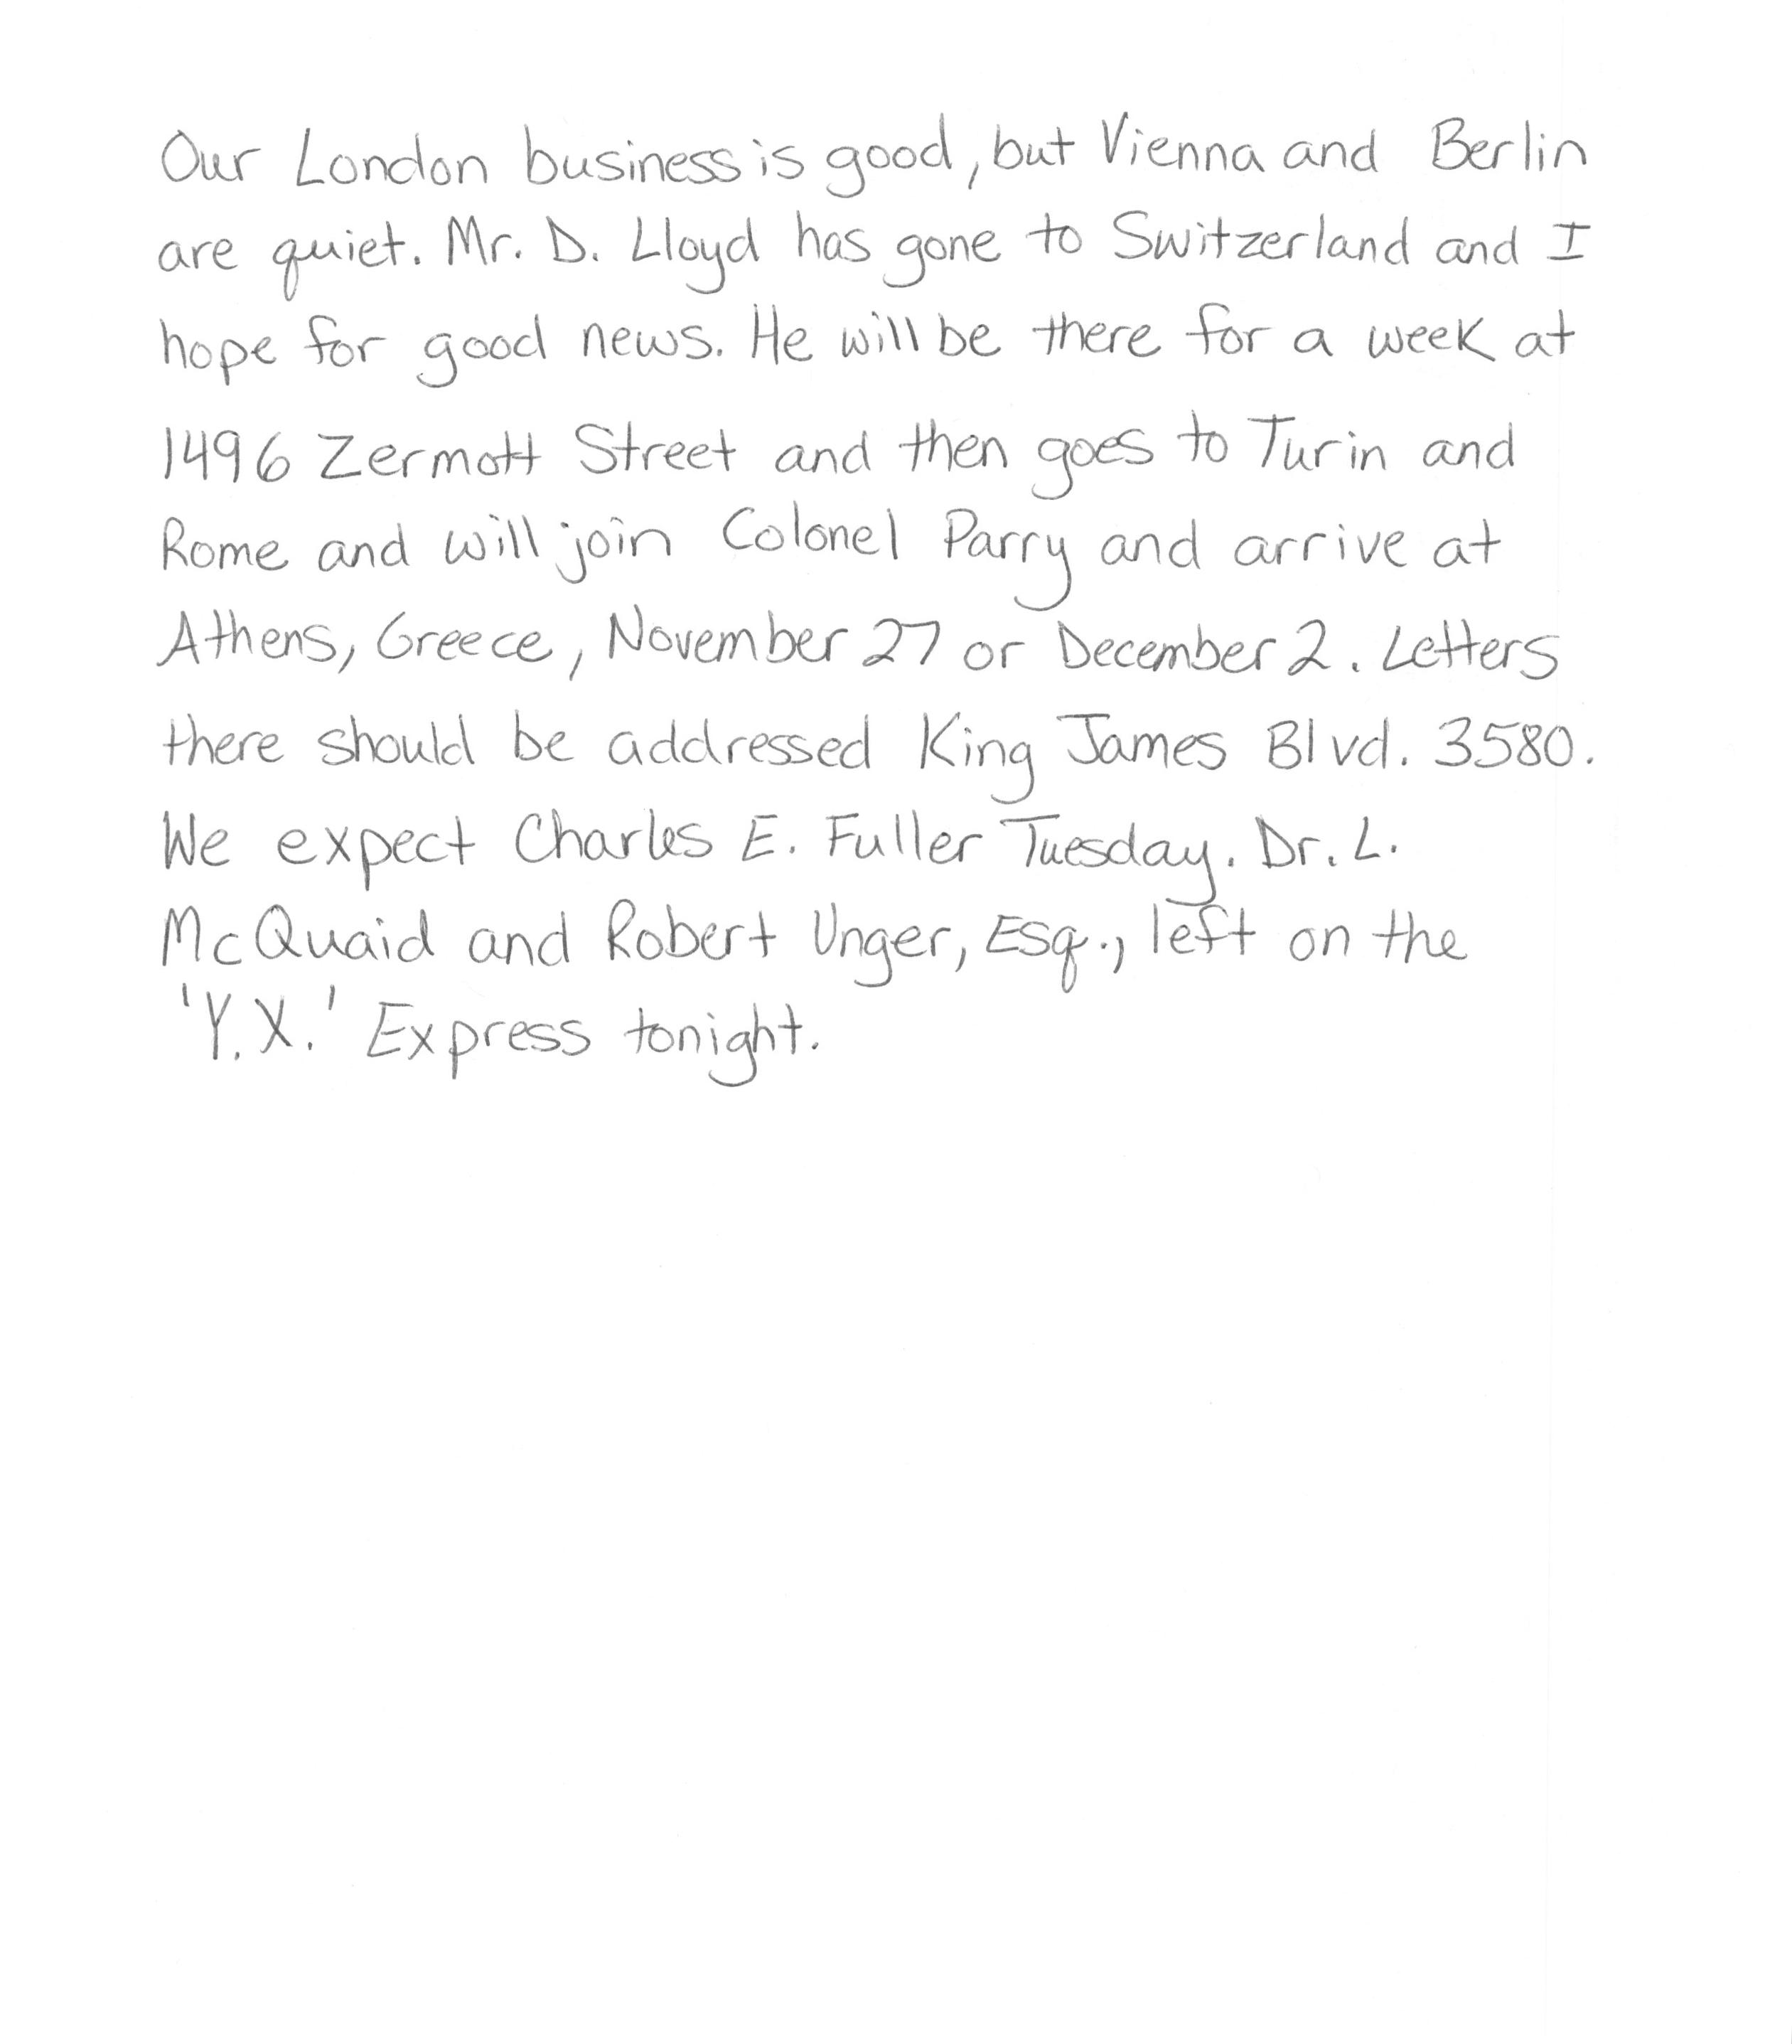 Our London business is good, but Vienna and Berlin
are quiet. Mr. D. Lloyd has gone to Switzerland and I
hope for good news. He will be there for a week at
1496 Zermott Street and then goes to Turin and
Rome and will join Colonel Parry and arrive at
Athens, Greece, November 27 or December 2. Letters
there should be addressed King James Blvd. 3580.
We expect Charles E. Fuller Tuesday. Dr. L.
McQuaid and Robert Unger, Esq., left on the
'Y.X.' Express tonight.